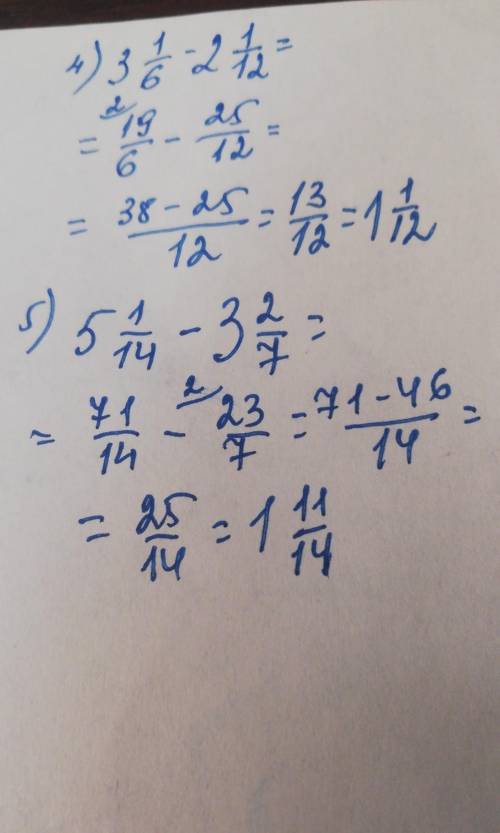 4) 3 1/6 - 2 1/12 =
= 19/6 (2 - 25/12 =
= (38 - 25)/12 = 13/12 = 1 1/12
5) 5 1/14 - 3 2/7 =
= 71/14 - 23/7 (2 = (71 - 46)/14 =
= 25/14 = 1 11/14